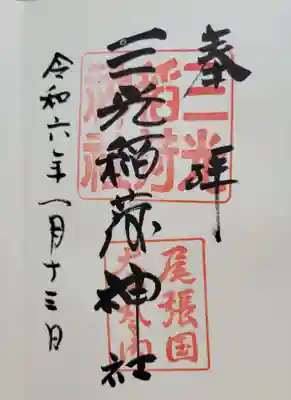 奉拝
三光稲荷神社
令和六年一月十三日
三光
稲荷
神社
尾張国
犬山